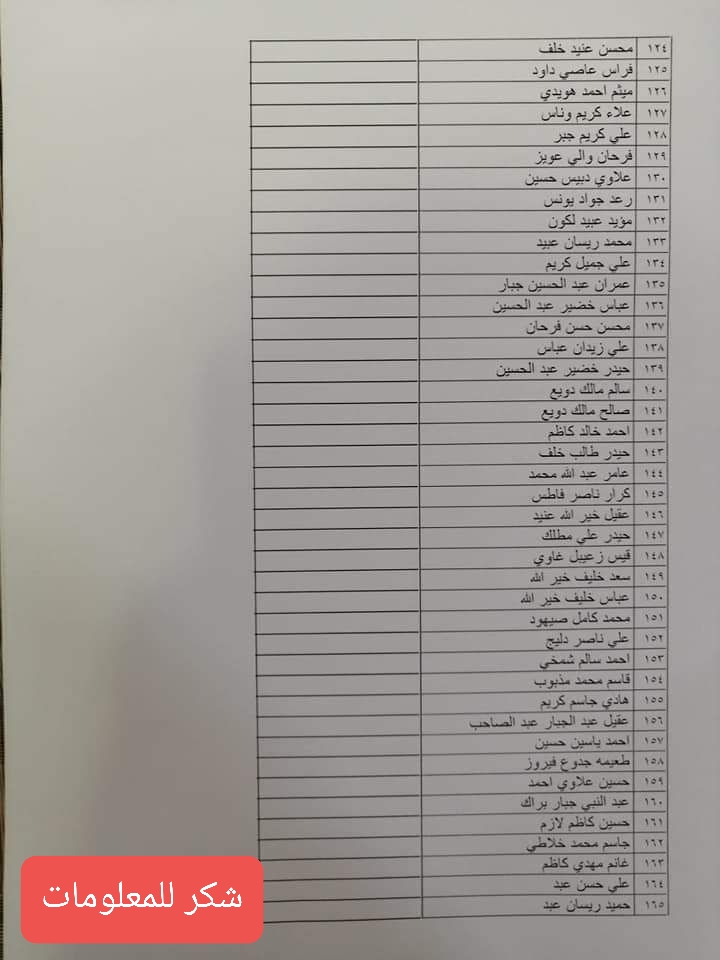 ١٢٤ محسن عنيد خلف
١٢٥ فراس عاصي داود
١٢٦ ميثم احمد هويدي
١٢٧ علاء كريم وناس
١٢٨ علي كريم جبر
١٢٩ فرحان والي عويز
١٣٠ علاوي دبيس حسين
١٣١ رعد جواد يونس
١٣٢ مؤيد عبيد لكون
١٣٣ محمد ريسان عبيد
١٣٤ علي جميل كريم
١٣٥ عمران عبد الحسين جبار
١٣٦ عباس خضير عبد الحسين
١٣٧ محسن حسن فرحان
١٣٨ علي زيدان عباس
١٣٩ حيدر خضير عبد الحسين
١٤٠ سالم مالك دويع
١٤١ صالح مالك دويع
١٤٢ احمد خالد كاظم
١٤٣ حيدر طالب خلف
١٤٤ عامر عبد الله محمد
١٤٥ كرار ناصر فاطس
١٤٦ عقيل خير الله عنيد
١٤٧ حيدر علي مطلك
١٤٨ قيس زعيبل غاوي
١٤٩ سعد خليف خير الله
١٥٠ عباس خليف خير الله
١٥١ محمد كامل صيهود
١٥٢ علي ناصر دليج
١٥٣ احمد سالم شمخي
١٥٤ قاسم محمد مذبوب
١٥٥ هادي جاسم كريم
١٥٦ عقيل عبد الجبار عبد الصاحب
١٥٧ احمد ياسين حسين
١٥٨ طعيمه جدوع فيروز
١٥٩ حسين علاوي احمد
١٦٠ عبد النبي جبار براك
١٦١ حسين كاظم لازم
١٦٢ جاسم محمد خلاطي
١٦٣ غانم مهدي كاظم
١٦٤ علي حسن عبد
١٦٥ حميد ريسان عبد
شكر للمعلومات